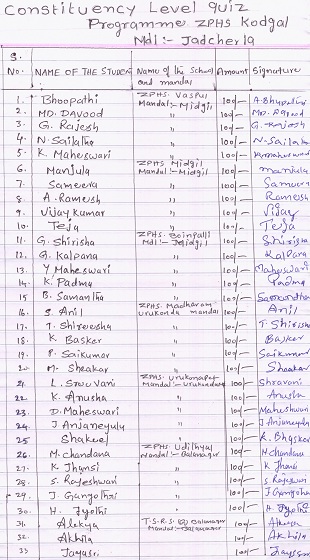 Constituency Level Quiz
Programme ZPHS Kodgal
Mdl:- Jadcherla
S. No. NAME OF THE STUDEN Name of the School and mandal Amount Signature
1. Bhoopathi ZPHS. Vaspul Mandal:- Midgil 100/- A. Bhupathi
2. MD. DAVOOD " 100/- MD. Davood
3. G. Rajesh " 100/- G. Rajesh
4. N. Sailatha " 100/- N. Sailatha
5. K. Maheswari " 100/-
6. Manjula ZPHS Midgil Mandal:- Midgil 100/- manjula
7. Sameera " 100/- Sameera
8. A. Ramesh " 100/- Ramesh
9. Vijay Kumar " 100/- Vijay
10. Teja " 100/- Teja
11. G. Shirisha ZPHS. Boinpalli Mdl:- Midgil 100/- Shirisha
12. G. Kalpana " 100/- Kalpana
13. Y Maheswari " 100/- Maheswari
14. K. Padma " 100/- Padma
15. B. Samantha " 100/- Samantha
16. S. Anil ZPHS. Madharam Urukonda mandal 100/- Anil
17. T. Shireesha " 100/- T. Shirisha
18. K Basker " 100/- Basker
19. P. Saikumar " 100/- Saikumar
20 M. Sheakar " 100/- Sheakar
21. L. Sravani ZPHS. Urukondapet Mandal:- Urukonda 100/- Shravani
22. K. Anusha " 100/- Anusha
23. D. Maheswari " 100/- Maheshwari
24. J Anjaneyulu " 100/- J Anjaneyulu
25 Shakeel " 100/- K. Bhasker
26. M. Chandana ZPHS Udithyal Mandal:- Balanagar 100/- M Chandana
27. K Jhansi " 100/- K Jhansi
28. S. Rajeshwari " 100/- S. Rajeswari
29. J Gangothri " 100/- J Gangothri
30 H. Jyothi " 100/- H. Jyothi
31. Alekya T.S.R.S. (G) Balanagar Mandal:- Balanagar 100/- Alekya
32. Akhila " 100/- Akhila
33 Jayasri " 100/- Jayasri